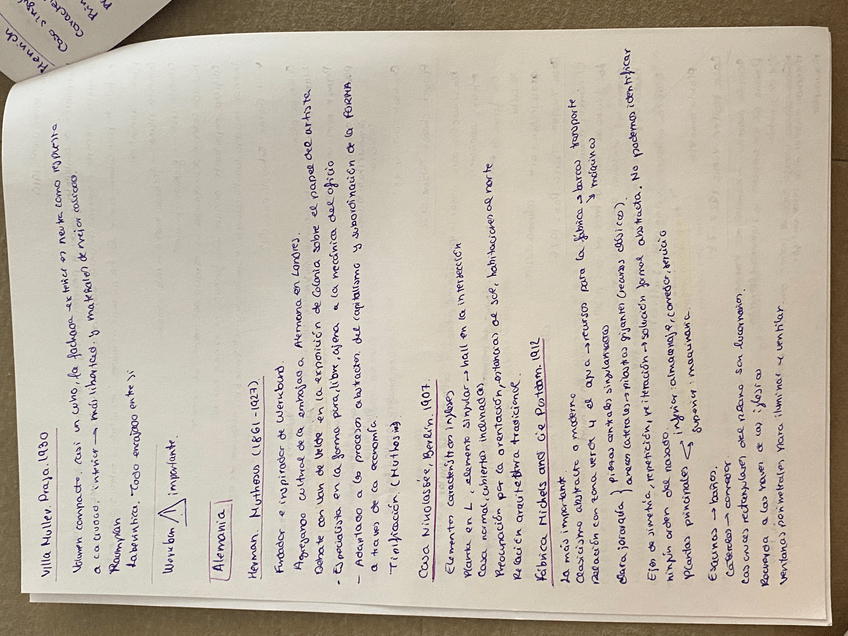 Villa Muller. Praga. 1930
Volumen compacto, casi un cubo, la fachada exterior es neutra como respuesta
a ca ciudad, interior → más libertad y materiales de mejor calidad.
Raumplan
Laberíntica. Todo encajado entre sí
Werkbun ⚠ importante
Alemania
Herman, Muthesus (1861-1927)
Fundador e inspirador de Werkbund.
Agregando cultural de la embajada Alemana en Londres.
Debate con Van de Velde en la exposición de Colonia sobre el papel del artista
- Especialista en la forma pura, libre, ajena a la mecánica del oficio
- Adaptado a los procesos abstractos del capitalismo y subordinación de la FORMA
a través de la economía.
Tipificación (Muthesius)
Casa Nikolassée, Berlín, 1907.
Elementos característicos ingleses
Planta en L, elemento singular → hall en la intersección
Casa normal, cubiertas inclinadas
Preocupación por la orientación, estancias al sol, habitaciones al norte
Relación arquitectura tradicional.
Fábrica Michels and Cie Postdam. 1912
La más importante.
Clasicismo abstracto o moderno
Relación con zona verde y el agua → recursos para la fábrica → barcas transporte
y máquinas
Clara jerarquía } piezas centrales singularizadas
áreas laterales → pilastras gigantes (recursos clásicos)
Ejes de simetría, repetición, reiteración → solución formal abstracta. No podemos identificar
ningún orden del pasado
Plantas principales < inferior: almacenaje, comedor, servicio
superior: maquinaria.
Esquinas → baños.
Laterales → comedor.
Las cruces rectangulares del plano son lucernarios.
Recuerda a las naves de las iglesias
Ventanas perimetrales para iluminar y ventilar.
Henrich